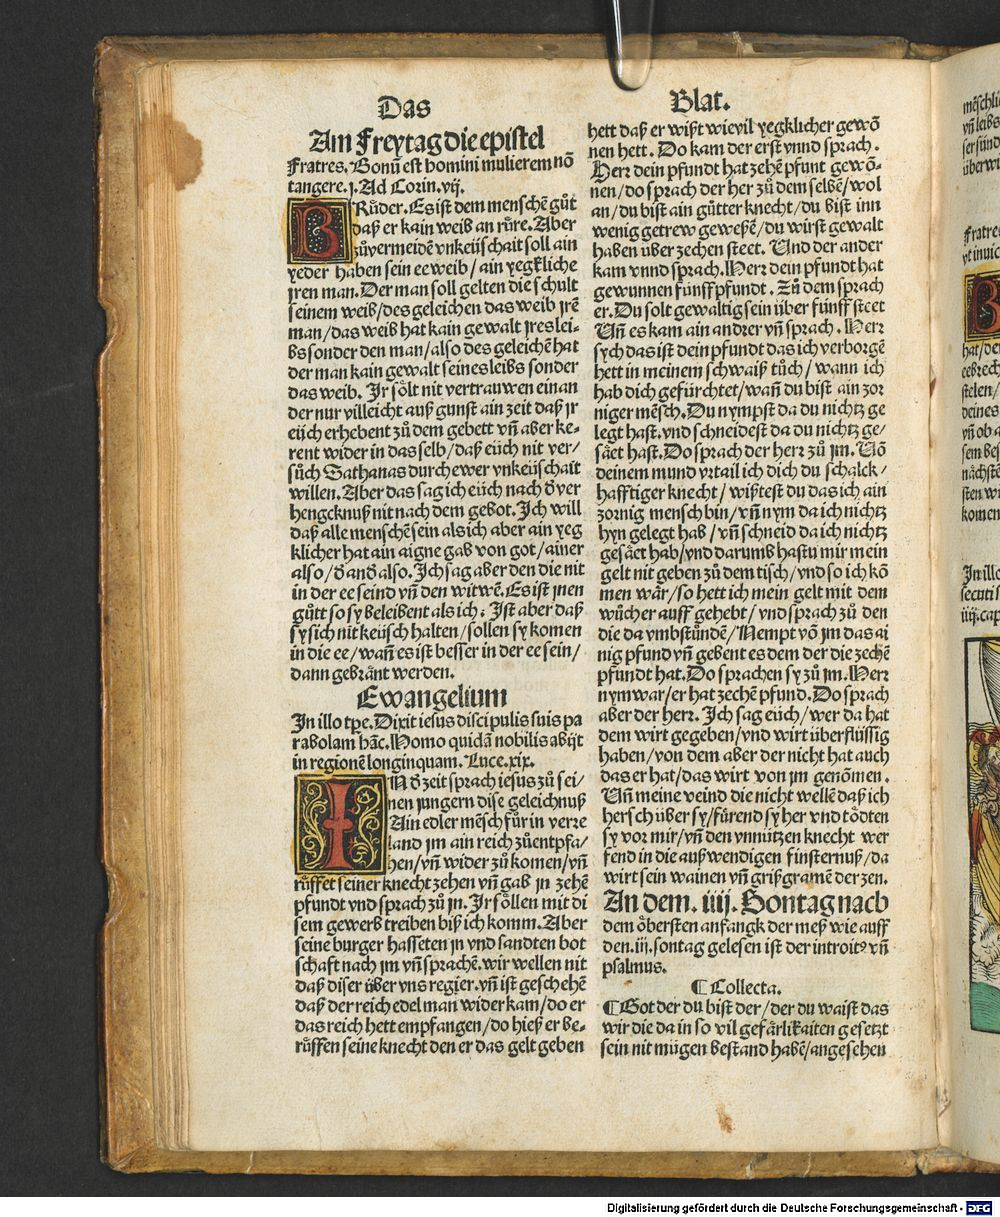 Das
Blat.
Am Freytag die epistel
Fratres. Bonū est homini mulierem nō
tangere. j. Ad Corin. vij.
BRůder. Es ist dem menschē gůt
daß er kain weib an růre. Aber
zůvermeidē vnkeüschait soll ain
yeder haben sein eeweib / ain yegkliche
jren man. Der man soll gelten die schult
seinem weib / des geleichen das weib jrē
man / das weib hat kain gewalt jres lei-
bs sonder den man / also des geleichē hat
der man kain gewalt seines leibs sonder
das weib. Ir sölt nit vertrauwen einan
der nur villeicht auß gunst ain zeit daß jr
eüch erhebent zů dem gebett vñ aber ke-
rent wider in das selb / daß eüch nit ver-
sůch Sathanas durch ewer vnkeüschait
willen. Aber das sag ich eüch nach d̛ ver
hengcknuß nit nach dem gebot. Ich will
daß alle menschē sein als ich aber ain yeg
klicher hat ain aigne gab von got / ainer
also / d̛ and̛ also. Ich sag aber den die nit
in der ee seind vñ den witwē. Es ist jnen
gůtt so sy beleibent als ich. Ist aber daß
sy sich nit keüsch halten / sollen sy komen
in die ee / wañ es ist besser in der ee sein /
dann gebrānt werden.
Ewangelium
In illo tpe. Dixit iesus discipulis suis pa
rabolam hāc. Homo quidā nobilis abijt
in regionē longinquam. Luce. xix.
IN d̛ zeit sprach iesus zů sei-
nen jungern dise geleichnuß
Ain edler mēsch fůr in verre
land jm ain reich zůentpfa-
hen / vñ wider zů komen / vñ
růffet seiner knecht zehen vñ gab jn zehē
pfundt vnd sprach zů jn. Ir söllen mit di
sem gewerb treiben biß ich komm. Aber
seine burger hasseten jn vnd sandten bot
schaft nach jm vñ sprachē. wir wellen nit
daß diser über vns regier. vñ ist geschehē
daß der reich edel man wider kam / do er
das reich hett empfangen / do hieß er be-
růffen seine knecht den er das gelt geben
hett daß er wißt wievil yegklicher gewō
nen hett. Do kam der erst vnnd sprach.
Herr dein pfundt hat zehē pfunt gewō-
nen / do sprach der her zů dem selbē / wol
an / du bist ain gůtter knecht / du bist inn
wenig getrew geweßē / du wirst gewalt
haben über zechen steet. Und der ander
kam vnnd sprach. Herr dein pfundt hat
gewunnen fünff pfundt. Zů dem sprach
er. Du solt gewaltig sein über fünff steet
Uñ es kam ain andrer vñ sprach. Herr
sych das ist dein pfundt das ich verborgē
hett in meinem schwaiß tůch / wann ich
hab dich gefürchtet / wañ du bist ain zor
niger mēsch. Du nympst da du nichtz ge
legt hast. vnd schneidest da du nichtz ge /
säet hast. Do sprach der herr zů jm. Uō
deinem mund vrtail ich dich du schalck /
hafftiger knecht / wißtest du das ich ain
zornig mensch bin / vñ nym da ich nichtz
hyn gelegt hab / vñ schneid da ich nichtz
gesäet hab / vnd darumb hastu mir mein
gelt nit geben zů dem tisch / vnd so ich kō
men wär / so hett ich mein gelt mit dem
wůcher auff gehebt / vnd sprach zů den
die da vmbstůndē / Nempt vō jm das ai
nig pfund vñ gebent es dem der die zechē
pfundt hat. Do sprachen sy zů jm. Herr
nym war / er hat zechē pfund. Do sprach
aber der herr. Ich sag eüch / wer da hat
dem wirt gegeben / vnd wirt überflüssig
haben / von dem aber der nicht hat auch
das er hat / das wirt von jm genōmen.
Uñ meine veind die nicht wellē daß ich
hersch über sy / fürend sy her vnd tödten
sy vor mir / vñ den vnnützen knecht wer
fend in die außwendigen finsternuß / da
wirt sein wainen vñ grißgramē der zen.
An dem. iiij. Sontag nach
dem öbersten anfangk der meß wie auff
den. iij. sontag gelesen ist der introitꝰ vñ
psalmus.
¶ Collecta.
¶ Got der du bist der / der du waist das
wir die da in so vil gefärlikaiten gesetzt
sein nit mügen bestand habē / angesehen
Digitalisierung gefördert durch die Deutsche Forschungsgemeinschaft - DFG